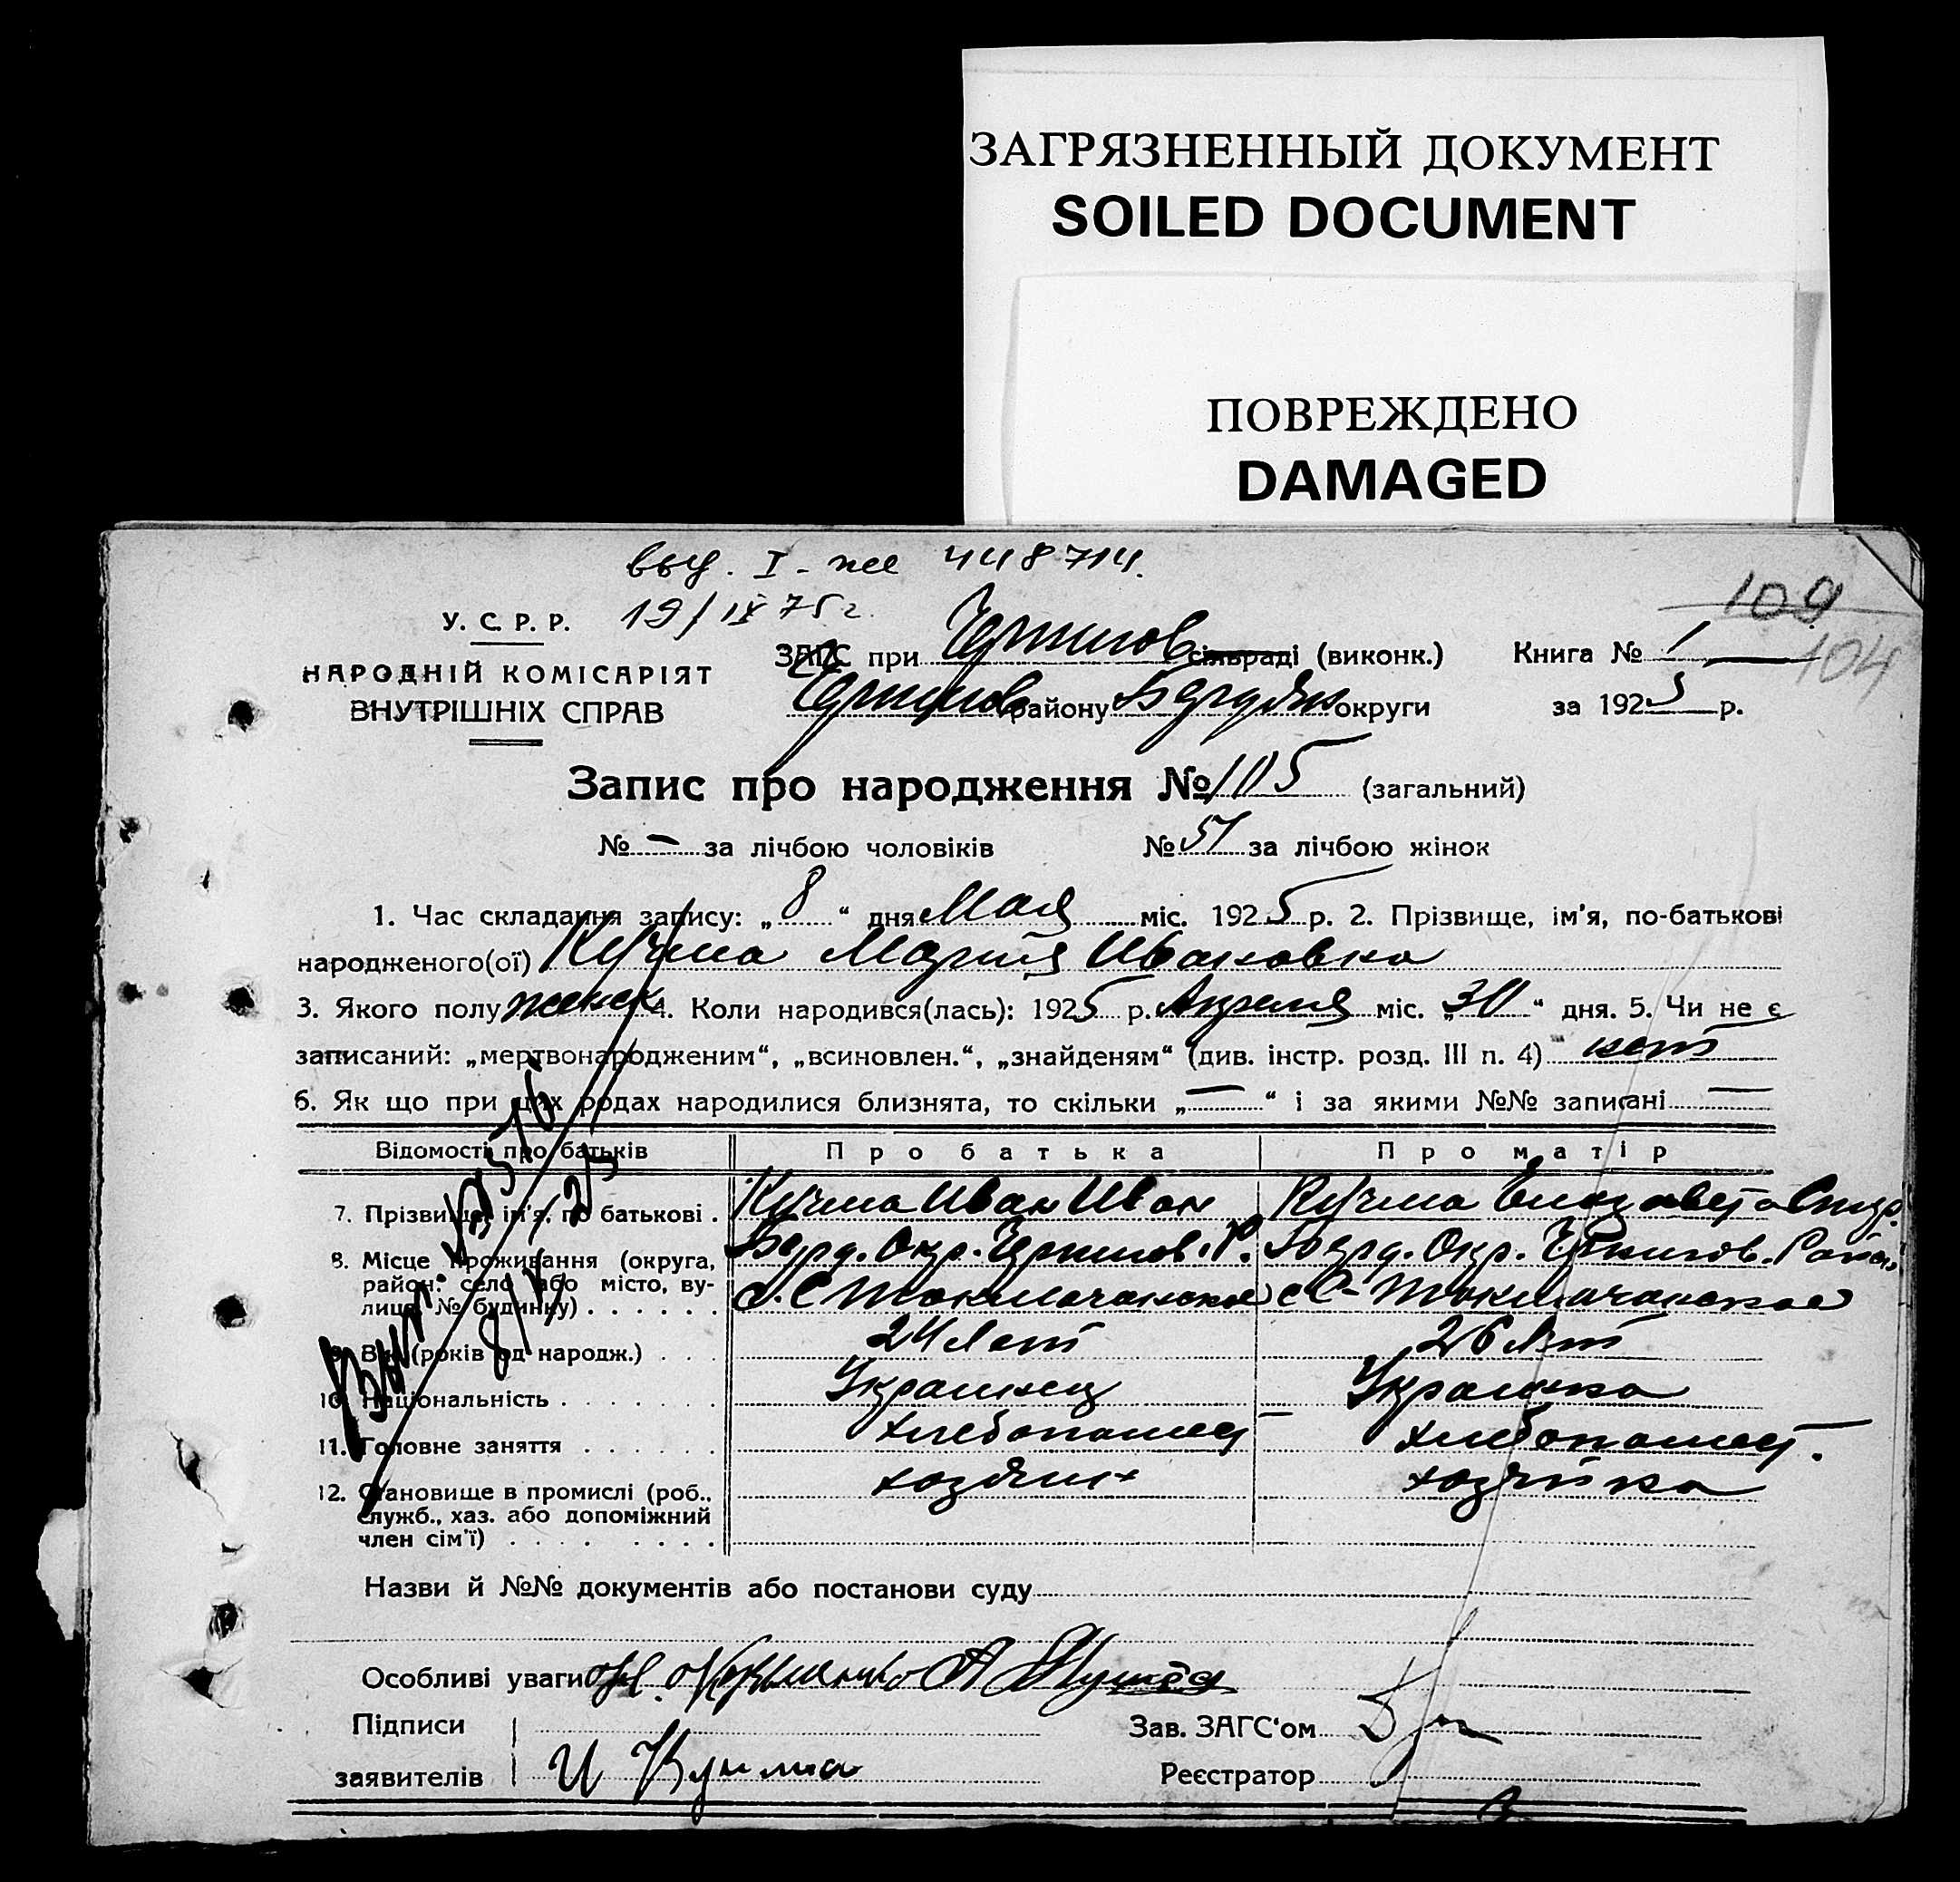 ЗАГРЯЗНЕННЫЙ ДОКУМЕНТ
SOILED DOCUMENT
ПОВРЕЖДЕНО
DAMAGED
выд. I-же 448714.
19/IX 75 г.
109
104
У. С. Р. Р.
НАРОДНІЙ КОМІСАРІЯТ
ВНУТРІШНІХ СПРАВ
ЗАГС при Чернигов сільраді (виконк.) Книга № 1
Чернигов району Бердян округи за 1925 р.
Запис про народження № 105 (загальний)
№ — за лічбою чоловіків № 51 за лічбою жінок
1. Час складання запису: „ 8 “ дня Мая міс. 1925 р. 2. Прізвище, ім'я, по-батькові
народженого(ої) Кучма Мария Ивановна
3. Якого полу женск 4. Коли народився(лась): 1925 р. Апреля міс. „30“ дня. 5. Чи не є
записаний: „мертвонародженим“, „всиновлен.“, „знайденям“ (див. інстр. розд. III п. 4) нет
6. Як що при цих родах народилися близнята, то скільки „—“ і за якими №№ записані —
Відомості про батьків Про батька Про матір
7. Прізвище, ім'я, по батькові . Кучма Иван Иван Кучма Елизавета
8. Місце проживання (округа, Берд. Окр. Чернигов. Р. Берд. Окр. Чернигов. Район,
район, село або місто, ву-
лиця, № будинку) . . . . . . с. С Токмачанское с С-Токмачанское
9. Вік (років од народж.) . . . 24 лет 26 лет
10. Національність . . . . . . . Украинец Украинка
11. Головне заняття . . . . . . хлебопашец хлебопашец.
12. Становище в промислі (роб., хозяин хозяйка
служб., хаз. або допоміжний
член сім'ї) . . . . . . . .
Назви й №№ документів або постанови суду
Особливі уваги
Підписи Зав. ЗАГС'ом
заявителів И Кучма Реєстратор